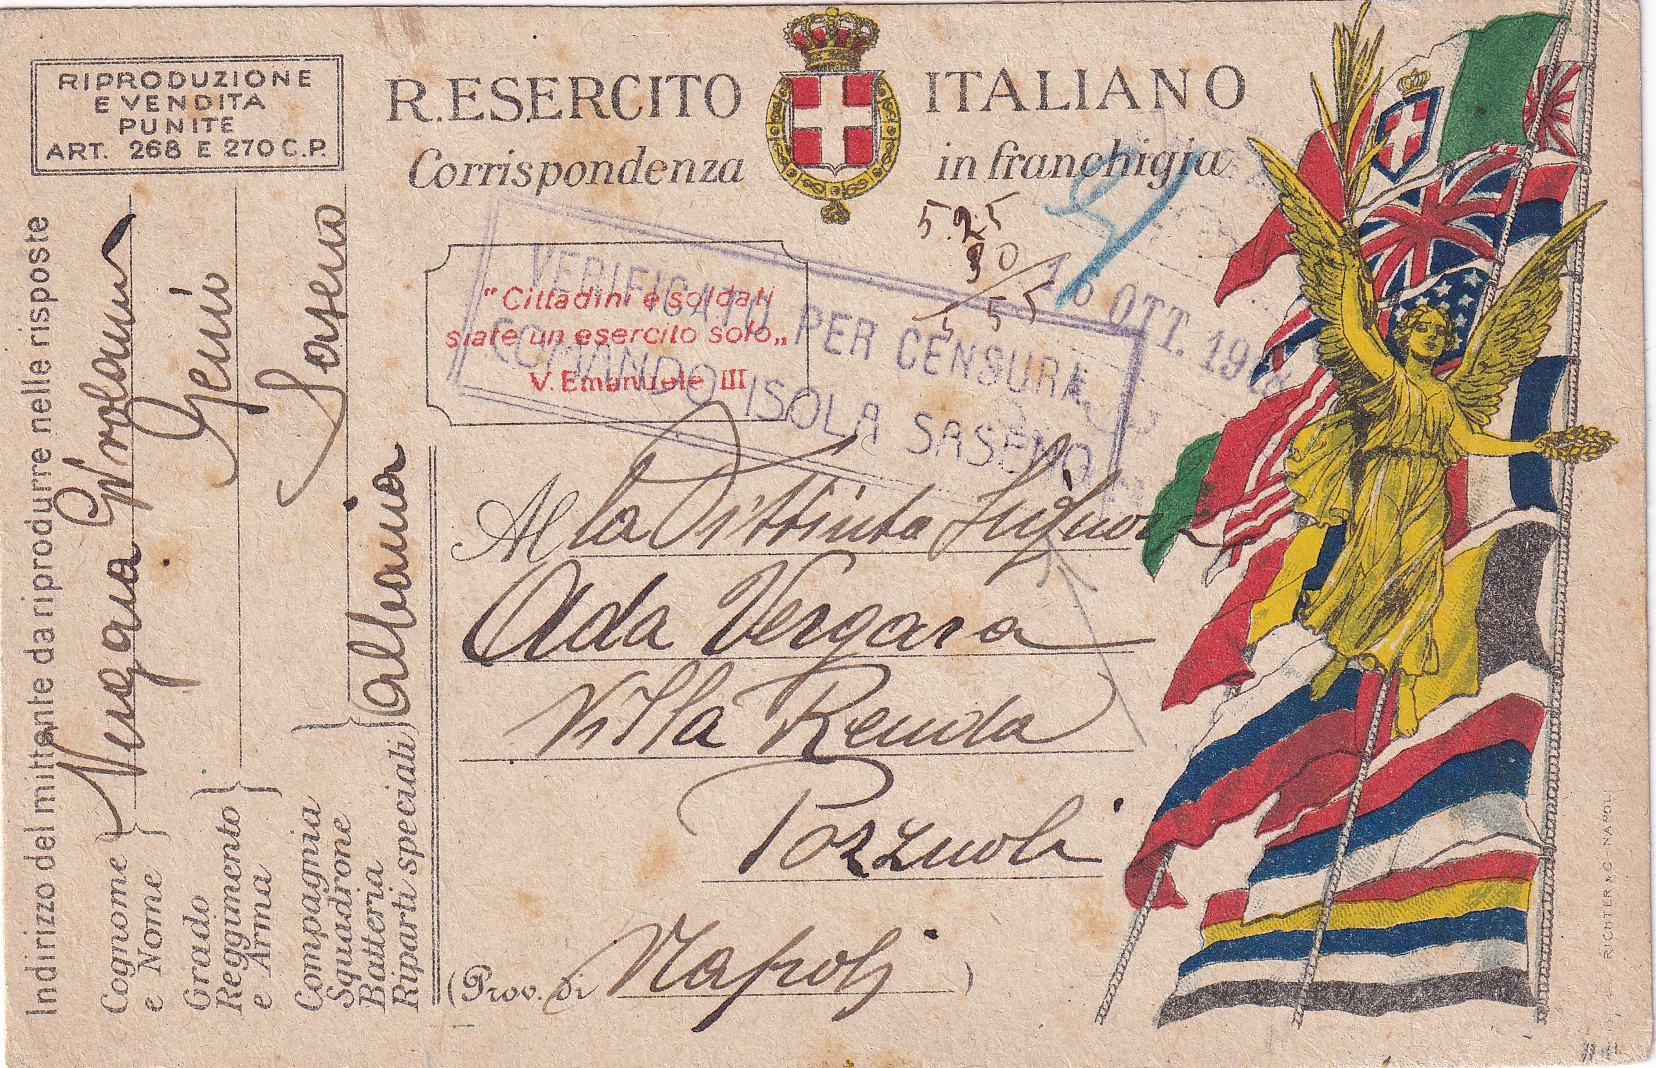 RIPRODUZIONE
E VENDITA
PUNITE
ART. 268 E 270 C.P.
R. ESERCITO ITALIANO
Corrispondenza in franchigia
5.25
30
5 55
"Cittadini e soldati
siate un esercito solo„
V. Emanuele III
VERIFICATO PER CENSURA
COMANDO ISOLA SASENO
16 OTT. 1918
Al la Distinta Signora
Ada Vergara
Villa Renda
Pozzuoli
(Prov. di Napoli)
Indirizzo del mittente da riprodurre nelle risposte
Cognome e Nome } Vergara Girolamo
Grado Reggimento e Arma } Genio
Saseno
Compagnia Squadrone Batteria Riparti speciali } Albania
RICHTER & C. NAPOLI